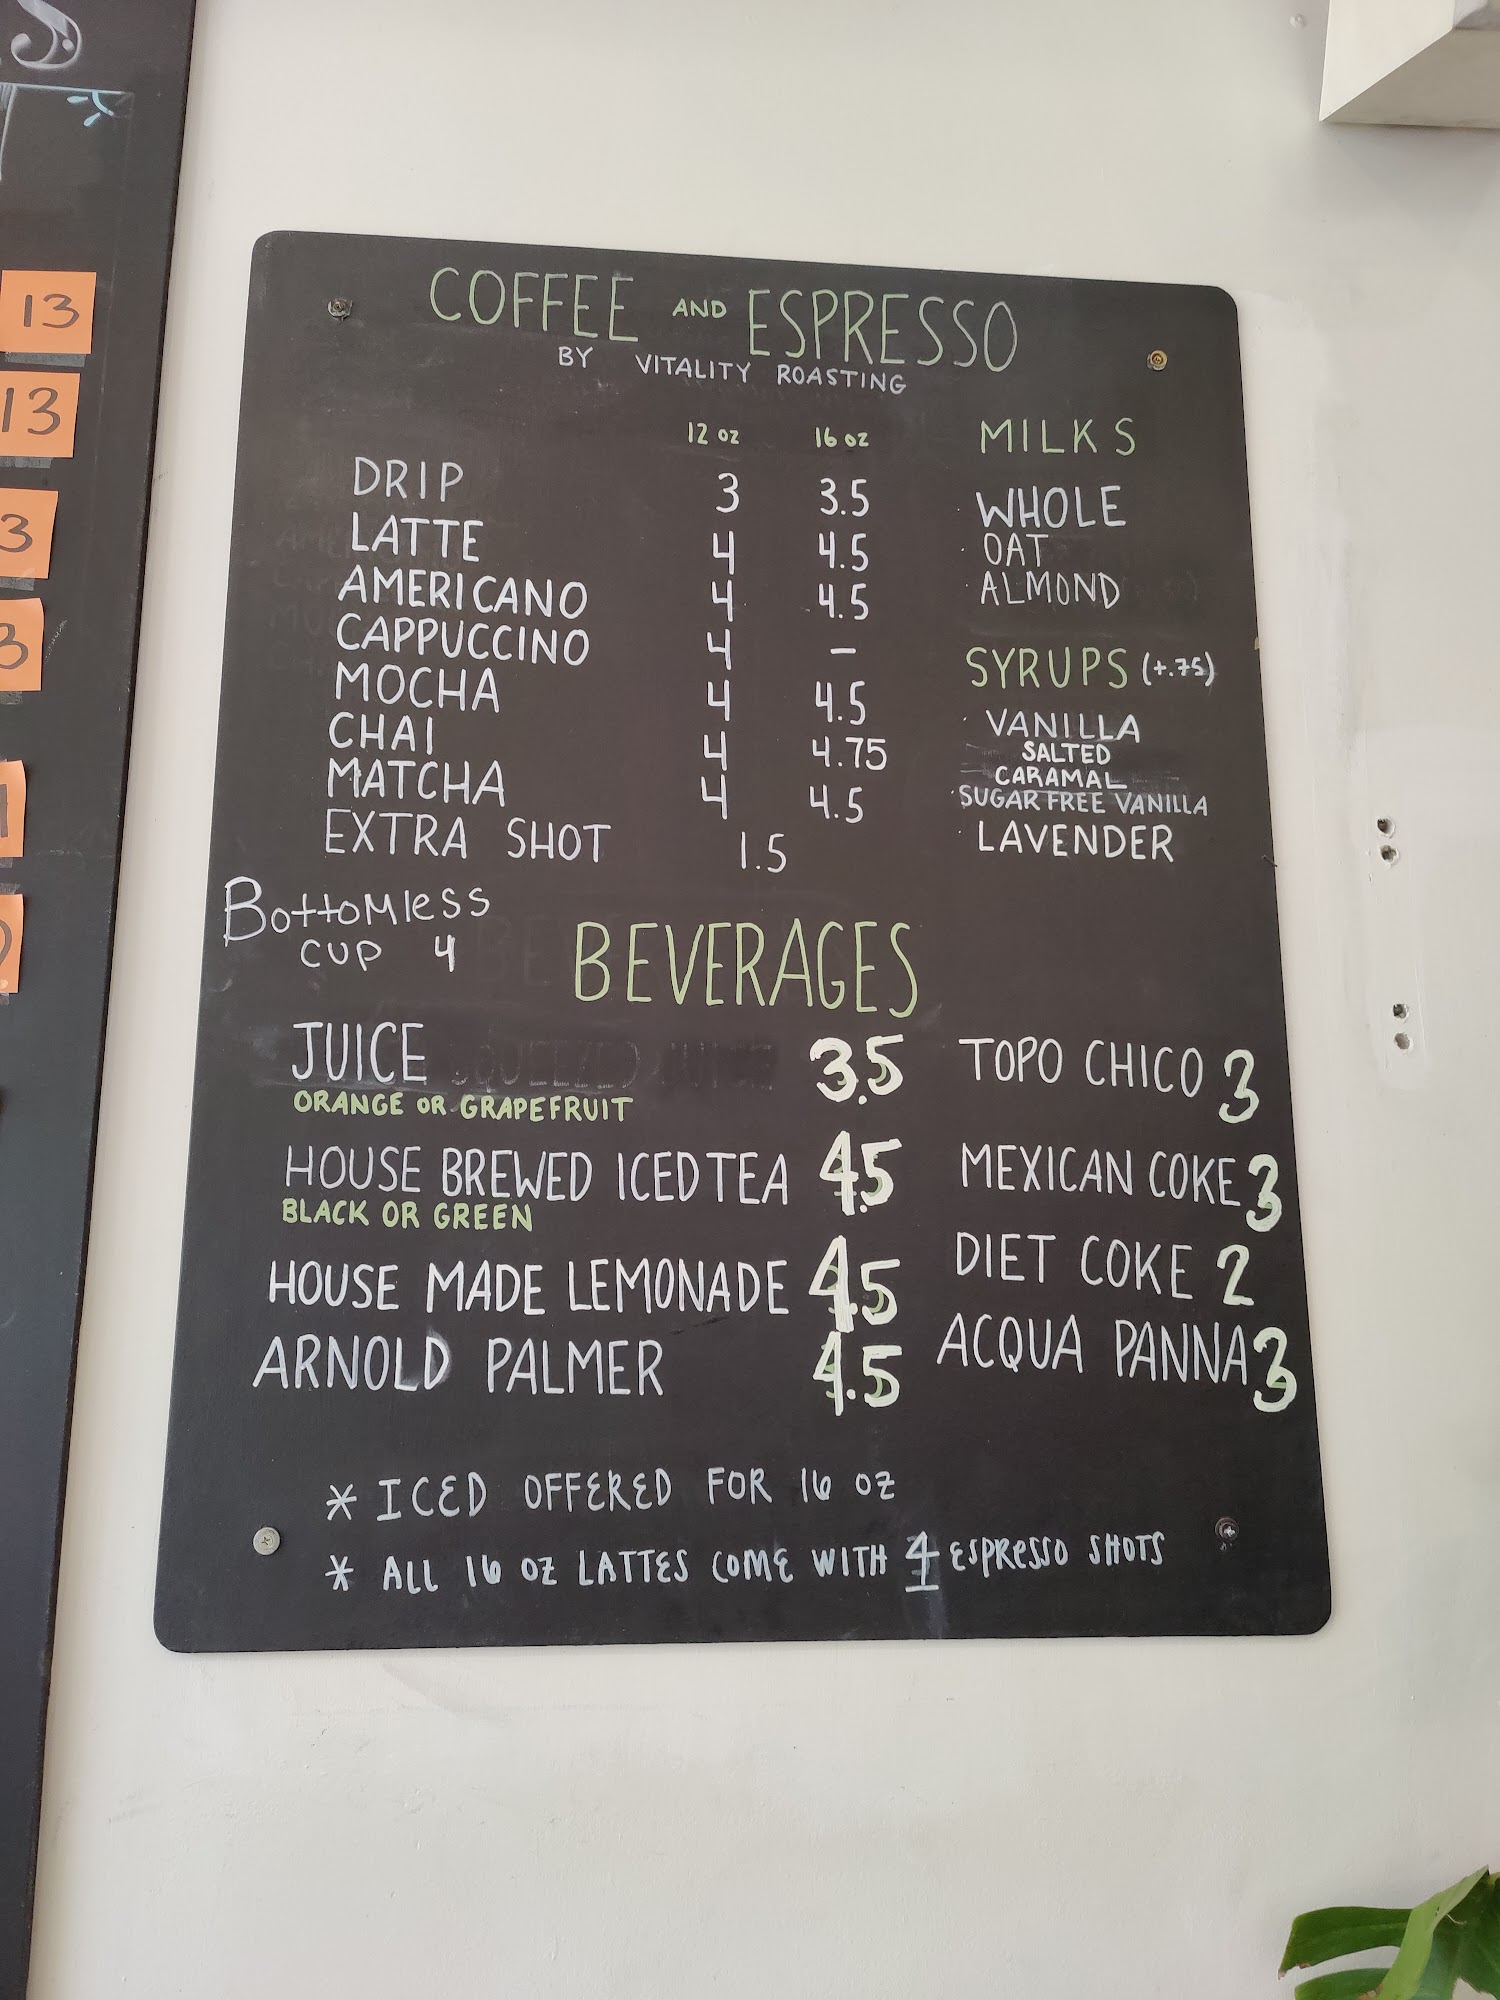 13
13
3
3
COFFEE AND ESPRESSO
BY VITALITY ROASTING
12 oz 16 oz
DRIP 3 3.5
LATTE 4 4.5
AMERICANO 4 4.5
CAPPUCCINO 4 –
MOCHA 4 4.5
CHAI 4 4.75
MATCHA 4 4.5
EXTRA SHOT 1.5
Bottomless
CUP 4
MILKS
WHOLE
· OAT
· ALMOND
SYRUPS (+.75)
· VANILLA
SALTED
CARAMAL
· SUGAR FREE VANILLA
· LAVENDER
BEVERAGES
JUICE 3.5
ORANGE OR GRAPEFRUIT
HOUSE BREWED ICED TEA 4.5
BLACK OR GREEN
HOUSE MADE LEMONADE 4.5
ARNOLD PALMER 4.5
TOPO CHICO 3
MEXICAN COKE 3
DIET COKE 2
ACQUA PANNA 3
* ICED OFFERED FOR 16 OZ
* ALL 16 OZ LATTES COME WITH 4 ESPRESSO SHOTS